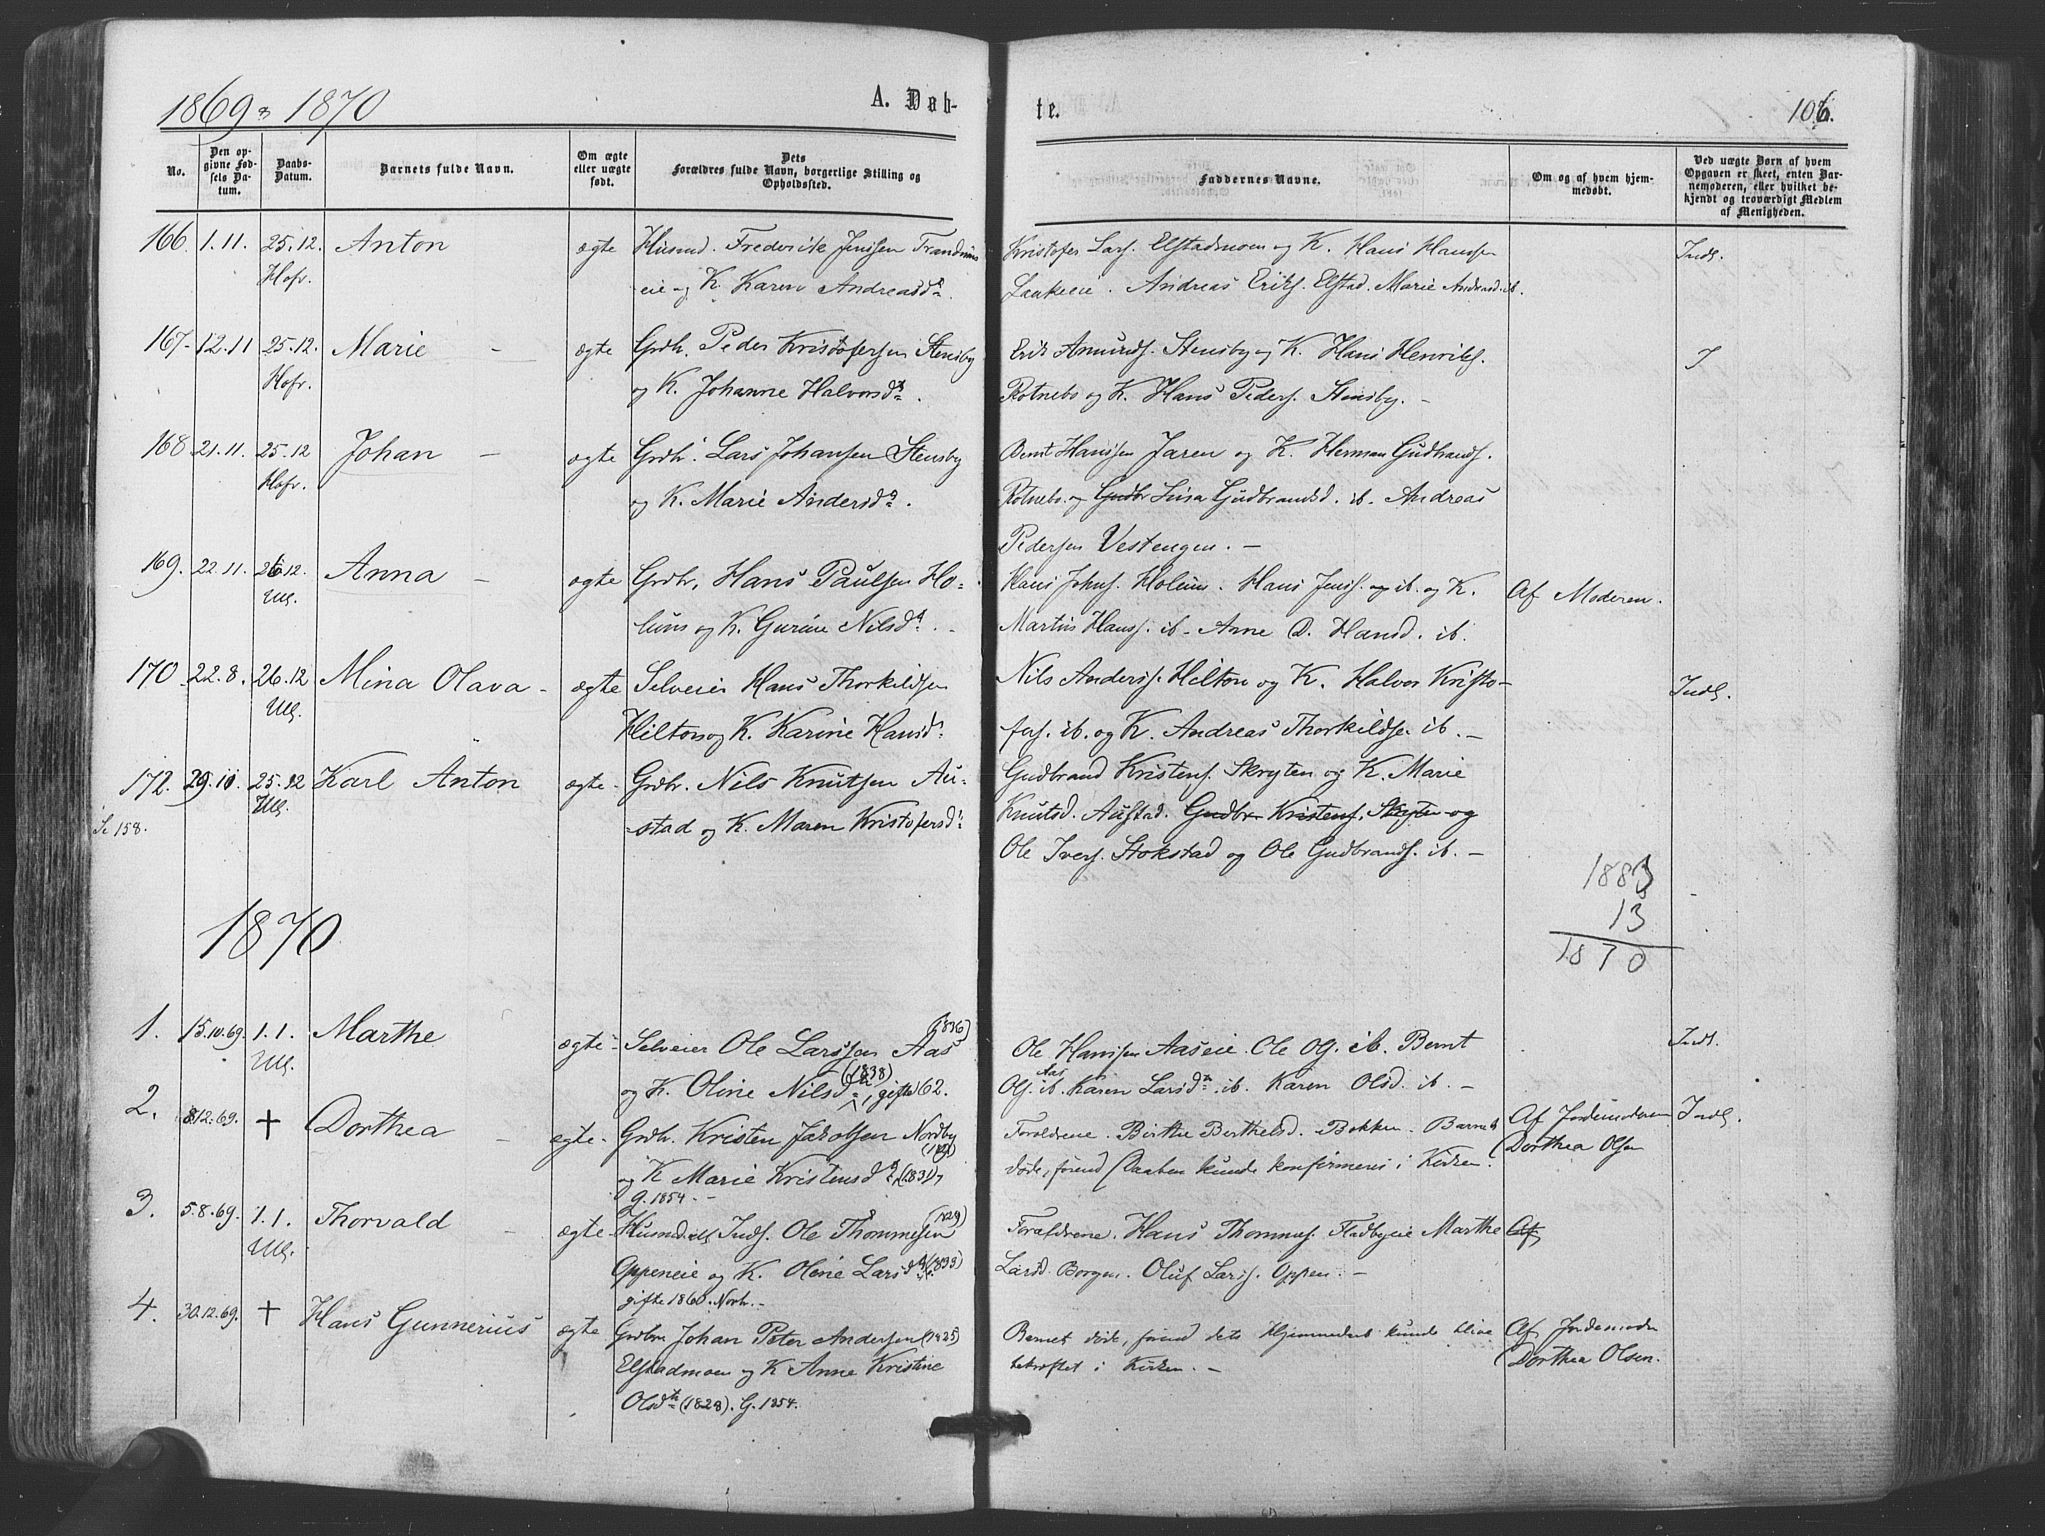 1869 & 1870 A. Døb- te. 106.
No. Den opgivne Fødsels Datum. Daabs-Datum. Barnets fulde Navn. Om ægte eller uægte født. Dets Forældres fulde Navn, borgerlige Stilling og Opholdssted. Faddernes Navne. Om og af hvem hjemmedøbt. Ved uægte Børn af hvem Opgaven er skeet, enten Barnemoderen, eller hvilket bekjendt og troværdigt Medlem af Menigheden.
166. 1.11. 25.12. Anton ægte Husmd. Frederik Jenssen Kristofer Lars. Elstadmoen og K. Hans Hanssen Inds.
Hofr. eie og K. Karen Andreasd. Andreas Eriks. Elstad. Marie Andreasd. ib.
167. 12.11 25.12. Marie - ægte Grdbr. Peder Kristofersen Stensby Erik Amunds. Stensby og K. Hans Henriks. I
Hofr. og K. Johanne Halvorsd. Rotnebo og K. Hans Peders. Stensby. -
168 21.11. 25.12 Johan - ægte Grdbr. Lars Johansen Stensby Bernt Hanssen Jaren og K. Herman Gudbrands.
Hofr. og K. Marie Andersd. Rotnebo og Gudbr Gudbrandsd. ib. Andreas
Pedersen Vestengen. -
169. 22.11. 26.12. Anna - ægte Grdbr. Hans Paulsen Ho- Hans Johns. Holum. Hans Jenss. og ib. og K. Af Moderen.
Ull. lum og K. Gurine Nilsd. - Martius Hanss. ib. Anne D. Hansd. ib.
170 22.8. 26.12 Mina Olava - ægte Selveier Hans Thorkildsen Nils Anderss. Hilton og K. Halvor Kristo- Inds.
Ull. Hilton og K. Karine Hansd. fers. ib. og K. Andreas Thorkilds. ib. -
172. 29.10. 25.12 Karl Anton ægte Grdbr. Nils Knutsen Au- Gudbrand Kristens. Skryten og K. Marie
Se 158. Ull. stad og K. Maren Kristofersd. Knutsd. Austad. Gudbr Kristens. Skryten og
Ole Ivers. Stokstad og Ole Gudbrands. ib. -
1883
13
1870
1870
1. 15.10.69. 1.1. Marthe ægte Selveier Ole Larssen Aas (1836) Ole Hanssen Aaseie. Ole Ols. ib. Bernt Inds.
Ull. og K. Oline Nilsd. (1838) gifte 62. Ols. ib. Aas Karen Larsd. ib. Karen Olsd. ib. -
2. 8.12.69. † Dorthea - ægte Grdbr. Kristen Jakobsen Nordby Forældrene. Birthe Berthelsd. Bakken. Barnet Af Jordemoderen Inds.
og K Marie Kristensd. (1831) døde, førend Daaben kunde konfirmeres i Kirken. Dorthea Olsen
G. 1854. -
3. 5.8.69. 1.1. Thorvald - ægte Husmd. Inds. Ole Thommesen (1829) Forældrene. Hans Thommes. Fladbyeie Marthe Af
Ull. Oppeneie og K. Oline Larsd. (1833) Larsd. Borgen. Oluf Larss. Oppen. -
gifte 1860. -
4. 30.12.69. † Hans Gunnerius ægte Grdbr. Johan Peter Andersen (1825) Barnet døde, førend dets Hjemmedaab kunde blive Af Jordemoder
Elstadmoen og K Anne Kristine bekræftet i Kirken. - Dorthea Olsen.
Olsd. (1828). G. 1854.